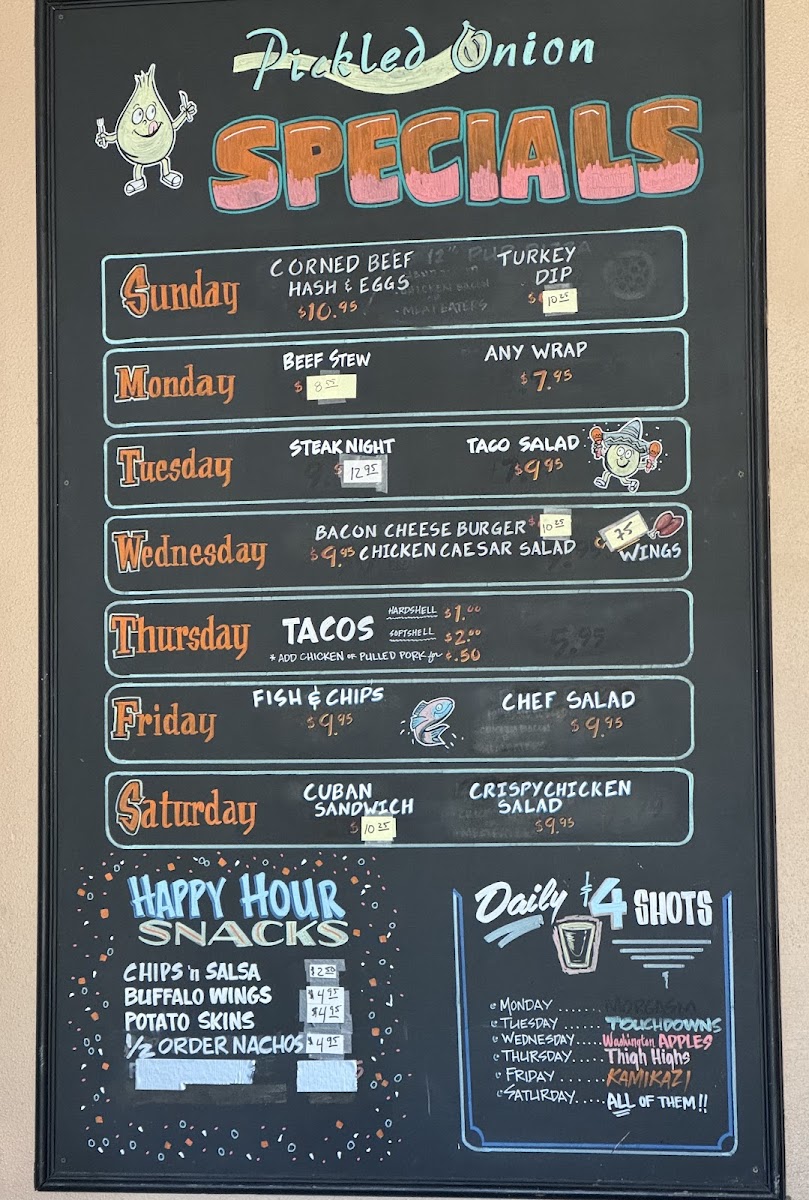 Pickled Onion
SPECIALS
Sunday
CORNED BEEF
HASH & EGGS
$10.95
TURKEY
DIP
$10.25
Monday
BEEF STEW
$8.55
ANY WRAP
$7.95
Tuesday
STEAK NIGHT
$12.95
TACO SALAD
$9.95
Wednesday
BACON CHEESE BURGER $10.25
$9.95 CHICKEN CAESAR SALAD
75
WINGS
Thursday
TACOS
HARDSHELL $1.00
SOFTSHELL $2.00
* ADD CHICKEN or PULLED PORK for $.50
5.95
Friday
FISH & CHIPS
$9.95
CHEF SALAD
$9.95
Saturday
CUBAN
SANDWICH
$10.25
CRISPY CHICKEN
SALAD
$9.95
HAPPY HOUR
SNACKS
CHIPS 'n SALSA $2.50
BUFFALO WINGS $4.95
POTATO SKINS $4.95
1/2 ORDER NACHOS $4.95
Daily $4 SHOTS
MONDAY ...... MORGASM
TUESDAY ...... TOUCHDOWNS
WEDNESDAY.... Washington APPLES
THURSDAY..... Thigh Highs
FRIDAY ...... KAMIKAZI
SATURDAY.... ALL OF THEM!!